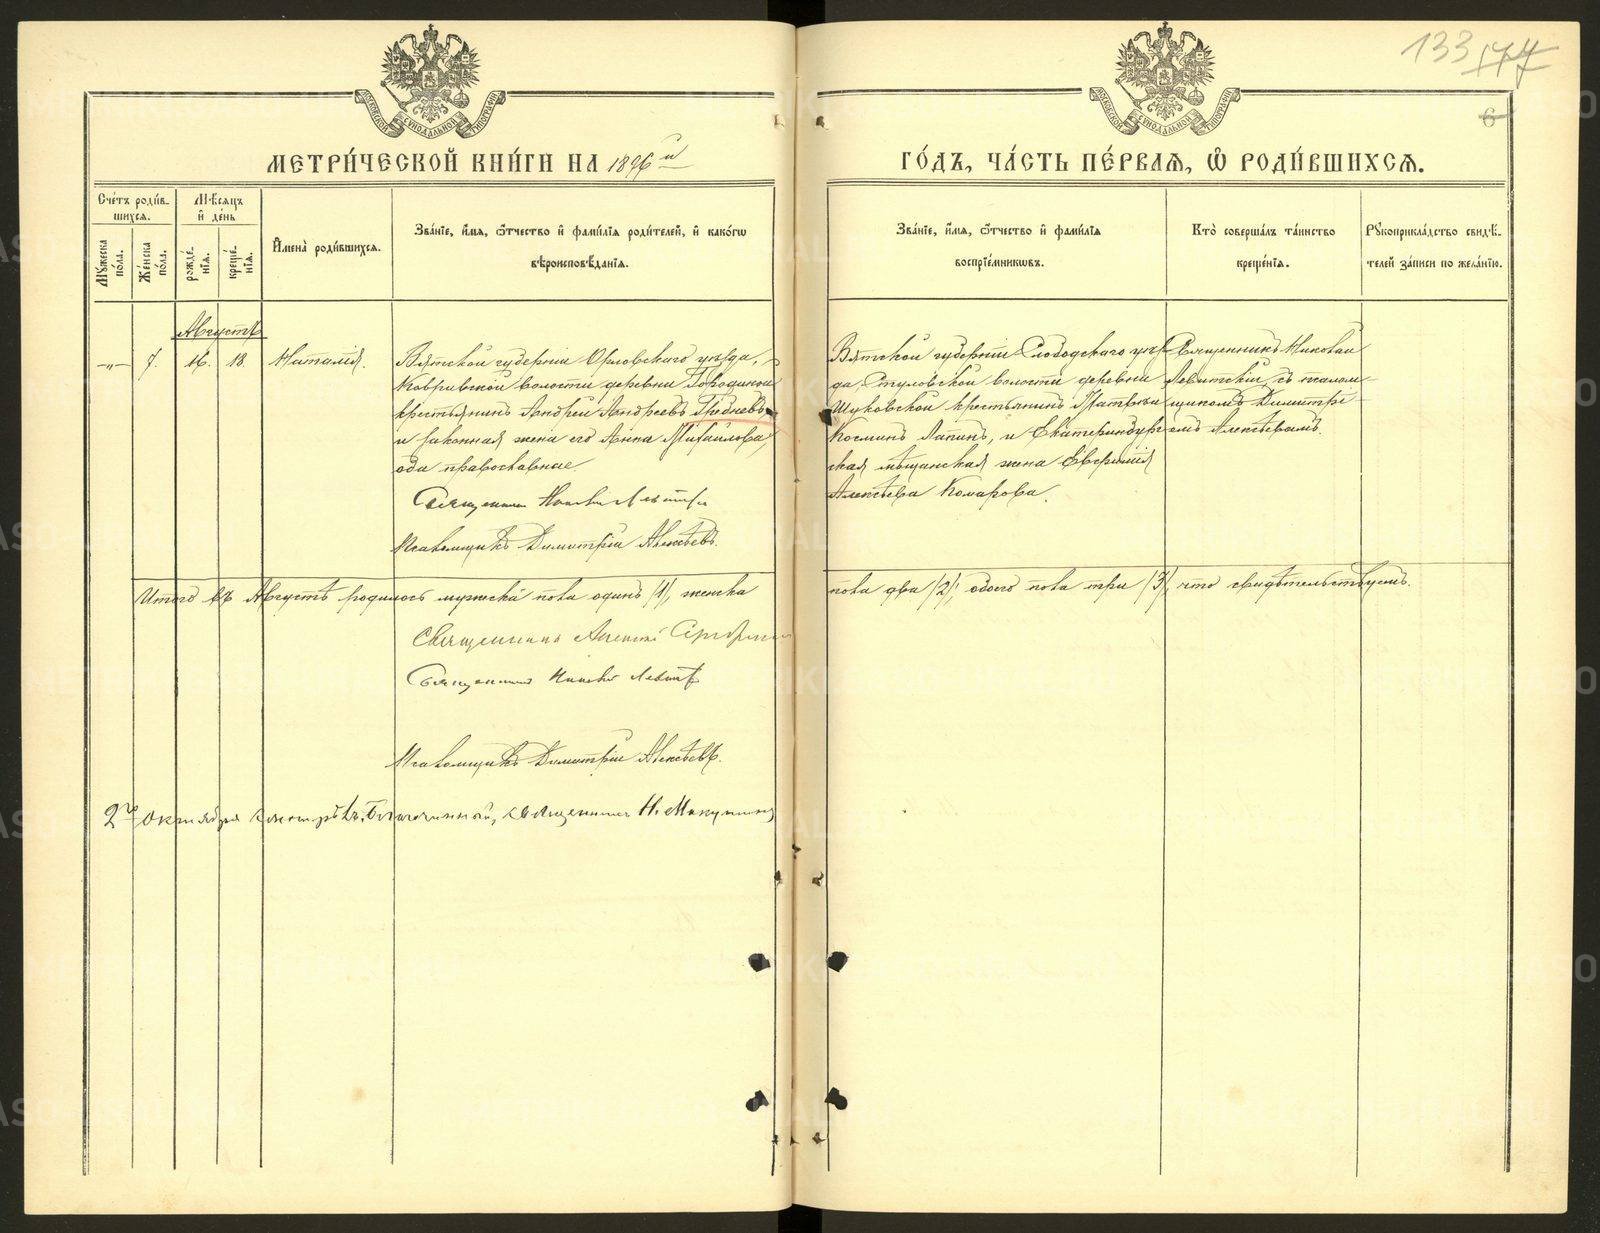 133 177
6
МОСКОВСКОЙ СѴНОДАЛЬНОЙ ТИПОГРАФІИ
МОСКОВСКОЙ СѴНОДАЛЬНОЙ ТИПОГРАФІИ
МЕТРИ́ЧЕСКОЙ КНИ́ГИ НА 1896й
ГО́ДЪ, ЧА́СТЬ ПЕ́РВАЯ, Ѿ РОДИ́ВШИХСЯ.
Сче́тъ роди́в-
шихся.
Мꙋ́жеска по́ла.
Же́нска по́ла.
Мѣ́сяцъ
и҆ де́нь
рожде́-
нїя.
креще́-
нїя.
И҆мена̀ роди́вшихся.
Зва́нїе, и҆́мя, ѻ҆́тчество и҆ фами́лїя роди́телей, и҆ како́гѡ
вѣроисповѣ́данїя.
Зва́нїе, и҆́мя, ѻ҆́тчество и҆ фами́лїя
воспрїе́мникѡвъ.
Кто̀ соверша́лъ та́инство
креще́нїя.
Рꙋкоприкла́дство свидѣ́-
телей за́писи по жела́нїю.
Августъ
—„— 7. 16. 18. Наталія.
Вятской губерніи Орловскаго уѣзда,
Ковривской волости деревни Городищи
крестьянинъ Андрей Андреевъ Гредневъ,
и законная жена его Анна Михаилова,
оба православные.
Священникъ Николай Левитскій
Псаломщикъ Димитрій Алексѣевъ.
Вятской губерніи Слободскаго уѣз-
да, Стуловской волости деревни
Шуковской крестьянинъ
Косминъ Лапинъ, и Екатеринбург-
ская мѣщанская жена Евфимія
Алексѣева Комарова.
Священникъ Николай
Левитскій, съ псалом-
щикомъ Димитрі-
емъ Алексѣевымъ.
Итого въ Августѣ родилось мужеска пола одинъ /1/, женска
пола два /2/, обоего пола три /3/, что свидѣтельствуемъ.
Священникъ Алексій
Священникъ Николай Левитскій
Псаломщикъ Димитрій Алексѣевъ.
2го Октября смотрѣлъ Благочинный, священникъ Н.